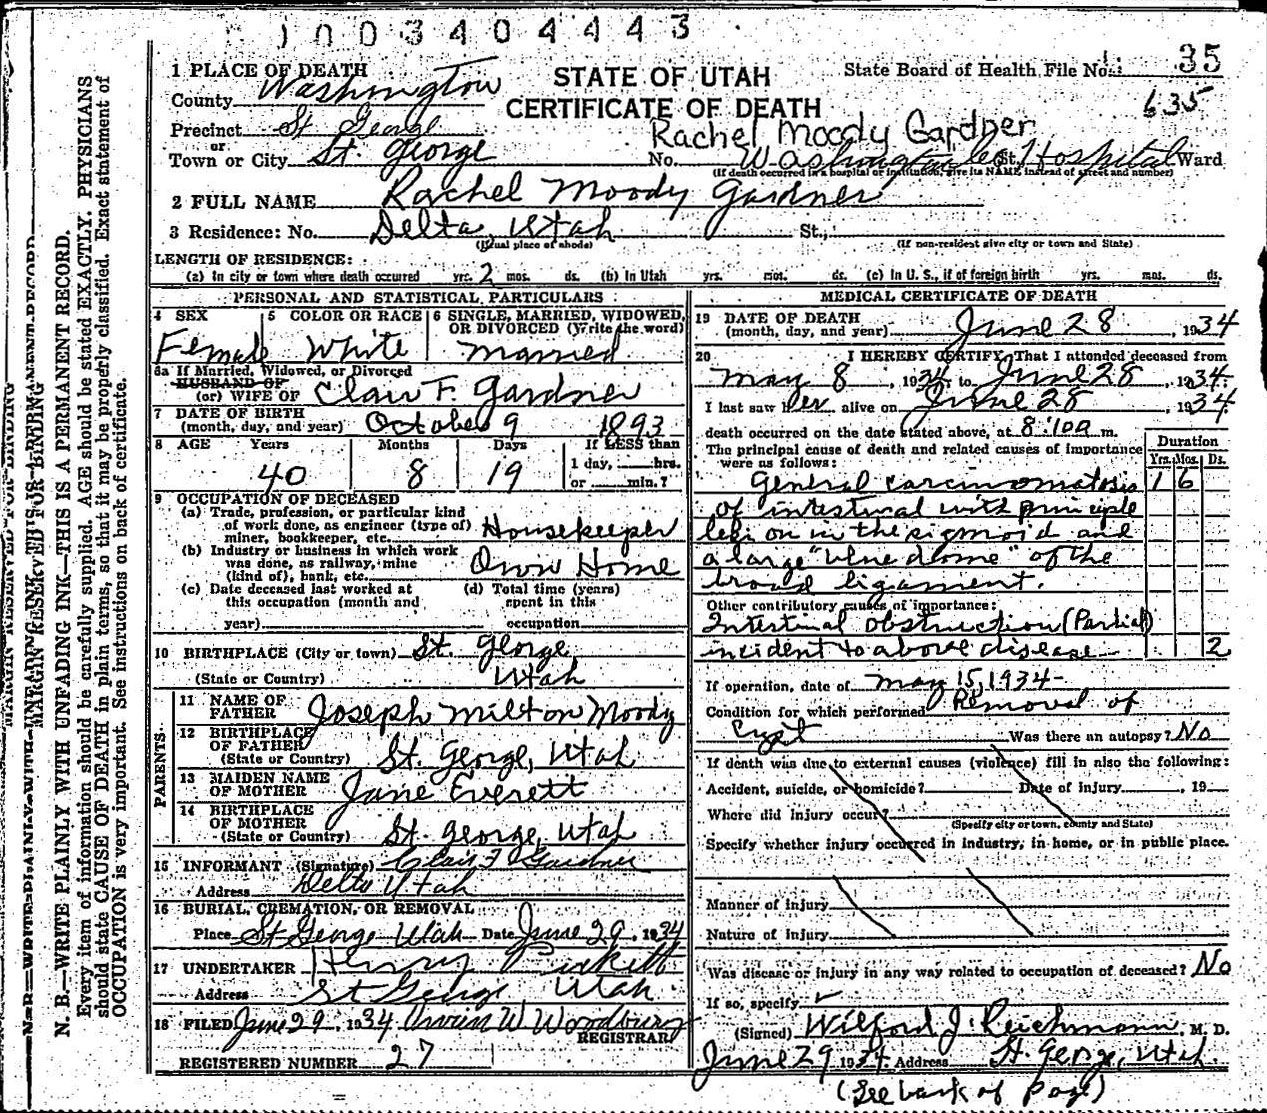 1003404443
35
635
STATE OF UTAH
CERTIFICATE OF DEATH
State Board of Health File No.
Rachel Moody Gardner
1 PLACE OF DEATH
County Washington
Precinct St George
or
Town or City St. George No. Washington Co. St. Hospital Ward
(If death occurred in a hospital or institution, give its NAME instead of street and number)
2 FULL NAME Rachel Moody Gardner
3 Residence: No. Delta, Utah St.,
(Usual place of abode) (If non-resident give city or town and State)
LENGTH OF RESIDENCE:
(a) In city or town where death occurred yrs. 2 mos. ds. (b) In Utah yrs. mos. ds. (c) In U. S., if of foreign birth yrs. mos. ds.
PERSONAL AND STATISTICAL PARTICULARS
4 SEX 5 COLOR OR RACE 6 SINGLE, MARRIED, WIDOWED, OR DIVORCED (Write the word)
Female White Married
6a If Married, Widowed, or Divorced
HUSBAND OF
(or) WIFE OF Clair F. Gardner
7 DATE OF BIRTH
(month, day, and year) October 9 1893
8 AGE Years Months Days If LESS than
40 8 19 1 day, hrs.
or min.?
9 OCCUPATION OF DECEASED
(a) Trade, profession, or particular kind
of work done, as engineer (type of)
miner, bookkeeper, etc. Housekeeper
(b) Industry or business in which work
was done, as railway, mine
(kind of), bank, etc. Own Home
(c) Date deceased last worked at (d) Total time (years)
this occupation (month and spent in this
year) occupation
10 BIRTHPLACE (City or town) St. George
(State or Country) Utah
PARENTS
11 NAME OF
FATHER Joseph Milton Moody
12 BIRTHPLACE
OF FATHER St. George, Utah
(State or Country)
13 MAIDEN NAME
OF MOTHER Jane Everett
14 BIRTHPLACE
OF MOTHER St. George, Utah
(State or Country)
15 INFORMANT (Signature) Clair F Gardner
Address Delta Utah
16 BURIAL, CREMATION, OR REMOVAL
Place St George Utah Date June 29, 1934
17 UNDERTAKER Henry Pickett
Address St George, Utah
18 FILED June 29, 1934 Orvin W Woodbury
REGISTRAR
REGISTERED NUMBER 27
MEDICAL CERTIFICATE OF DEATH
19 DATE OF DEATH
(month, day, and year) June 28, 1934
20 I HEREBY CERTIFY, That I attended deceased from
May 8, 1934, to June 28, 1934.
I last saw her alive on June 28, 1934
death occurred on the date stated above, at 8:10a m.
The principal cause of death and related causes of importance
were as follows:
Duration
Yrs. Mos. Ds.
General carcinomatosis 1 6
of intestinal with principle
lesion in the sigmoid and
a large "blue dome" of the
broad ligament.
Other contributory causes of importance:
Intestinal obstruction (Partial)
incident to above disease 2
If operation, date of May 15, 1934
Condition for which performed Removal of
Cyst Was there an autopsy? No
If death was due to external causes (violence) fill in also the following:
Accident, suicide, or homicide? Date of injury , 19
Where did injury occur?
(Specify city or town, county and State)
Specify whether injury occurred in industry, in home, or in public place.
Manner of injury
Nature of injury
Was disease or injury in any way related to occupation of deceased? No
If so, specify
(Signed) Wilford J. Reichmann, M. D.
June 29 1934. Address St. George, Utah.
(See back of page)
MARGIN RESERVED FOR BINDING
N. B.—WRITE PLAINLY WITH UNFADING INK—THIS IS A PERMANENT RECORD.
Every item of information should be carefully supplied. AGE should be stated EXACTLY. PHYSICIANS
should state CAUSE OF DEATH in plain terms, so that it may be properly classified. Exact statement of
OCCUPATION is very important. See instructions on back of certificate.